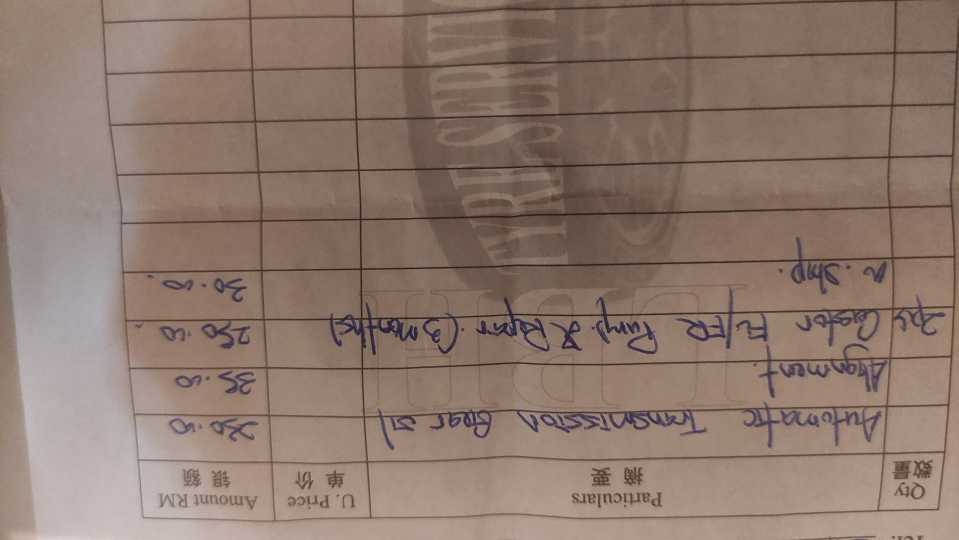 Tel:
Qty Particulars U. Price Amount RM
数量 摘要 单价 银额
Automatic Transmission Gear oil 250.00
Alignment. 35.00
2pcs Castor FL/FR Pump & Repair. (3 months) 250.00
30.00
TYRE SERVI